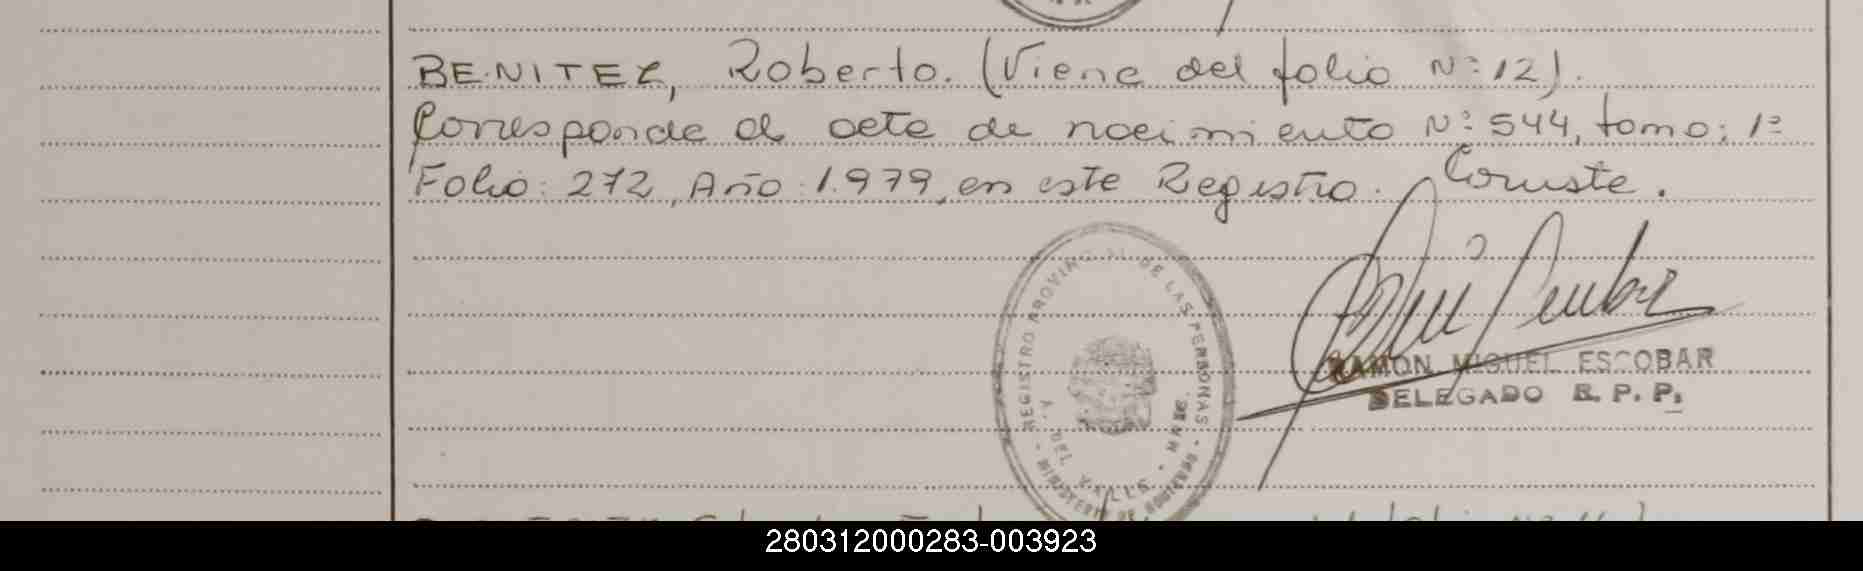 BENITEZ, Roberto. (Viene del folio Nº: 12).
Corresponde al acta de nacimiento Nº: 544, tomo: 1º
Folio: 272, Año: 1.979, en este Registro. Conste.
REGISTRO PROVINCIAL DE LAS PERSONAS
A. DEL VALLE
MINISTERIO DE GOBIERNO
RAMON MIGUEL ESCOBAR
DELEGADO R. P. P.
280312000283-003923